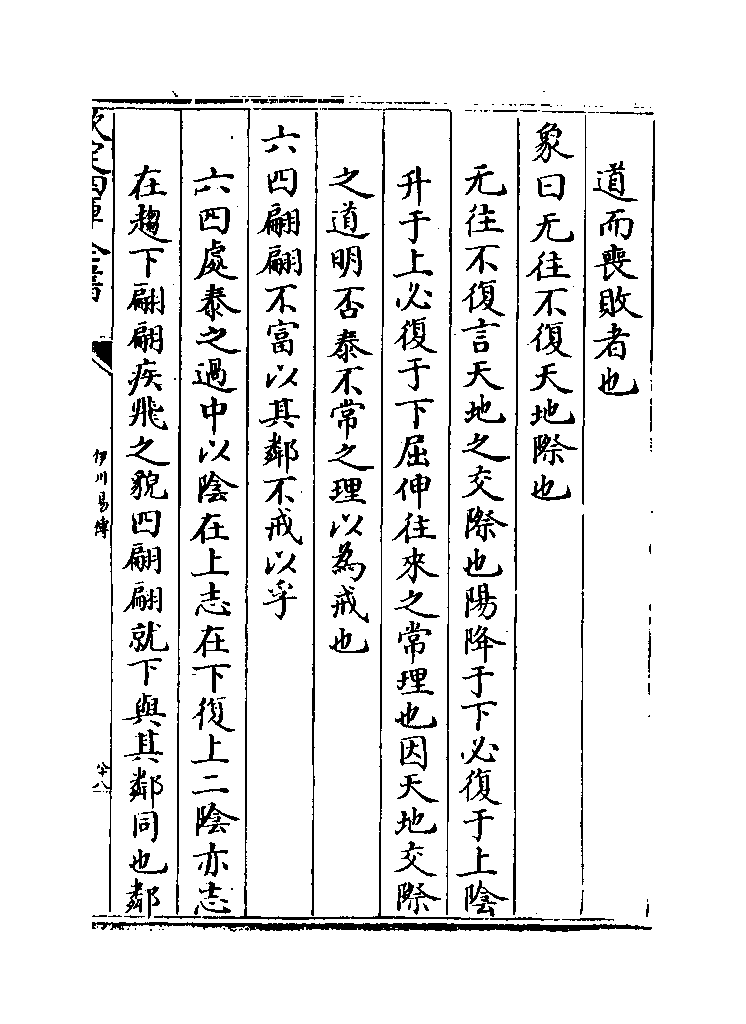 道而喪敗者也
象曰无往不復天地際也
无往不復言天地之交際也陽降于下必復于上陰
升于上必復于下屈伸往來之常理也因天地交際
之道明否泰不常之理以為戒也
六四翩翩不富以其鄰不戒以孚
六四處泰之過中以陰在上志在下復上二陰亦志
在趨下翩翩疾飛之貌四翩翩就下與其鄰同也鄰
欽定四庫全書
伊川易傳